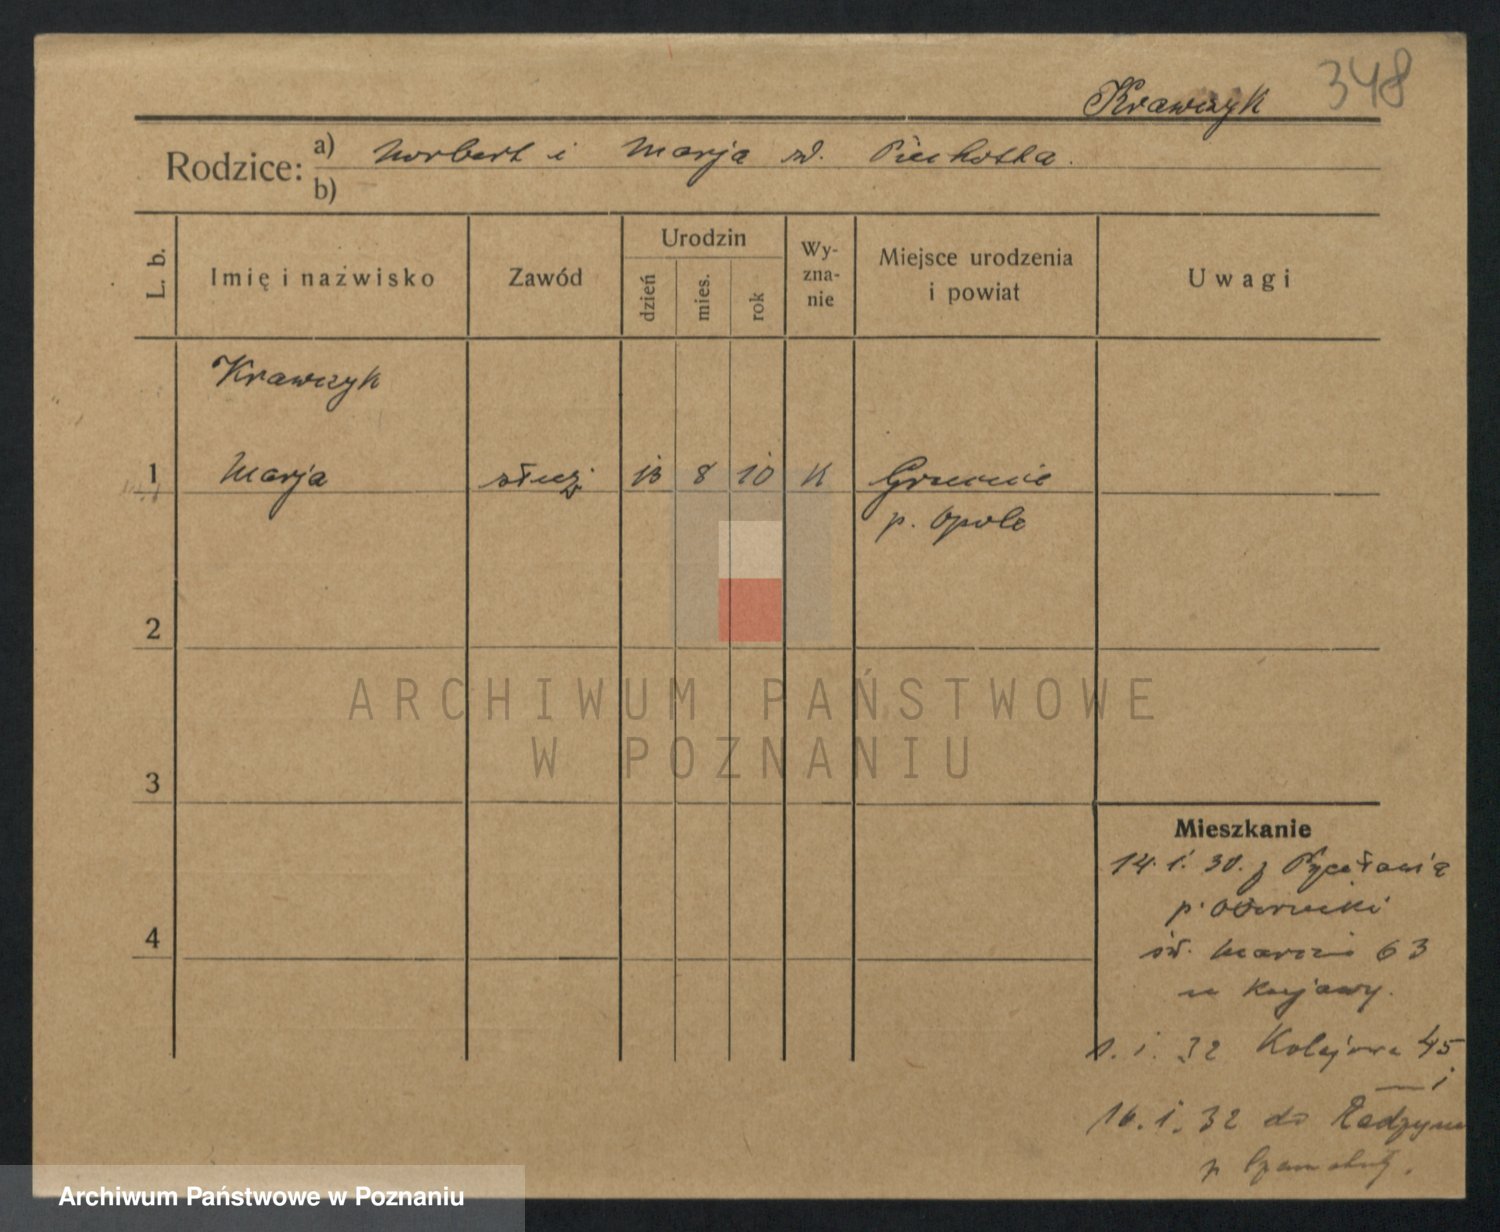 348
Krawczyk
Rodzice: a) Norbert i Marja zd. Piechotka.
b)
L. b.
Imię i nazwisko
Zawód
Urodzin
dzień
mies.
rok
Wy-
zna-
nie
Miejsce urodzenia
i powiat
Uwagi
Krawczyk
1 Marja służ. 13 8 10 K
p. Opole
2
3
4
Mieszkanie
14. 1. 30. z
p. Oborniki
św. Marcin 63
u Kujawy.
1. 1. 32 Kolejowa 45
16. 1. 32 do
p. Szamotuły.
ARCHIWUM PAŃSTWOWE
W POZNANIU
Archiwum Państwowe w Poznaniu